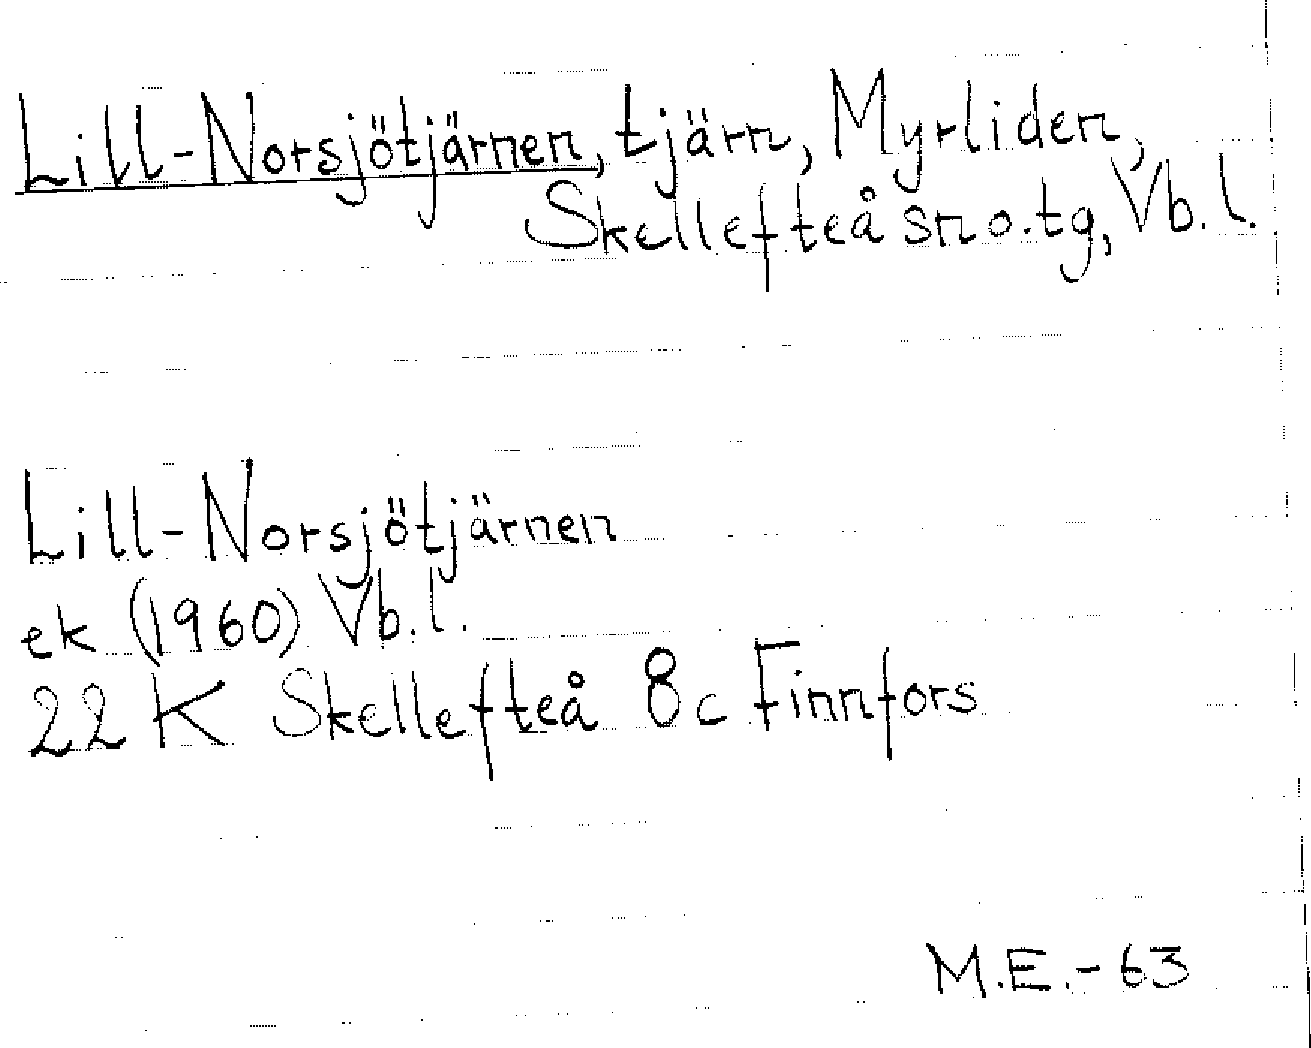 Lill-Norsjötjärnen, tjärn, Myrliden,
Skellefteå sn o. tg, Vb. l.
Lill-Norsjötjärnen
ek (1960) Vb. l.
22 K Skellefteå 8c Finnfors
M.E.-63